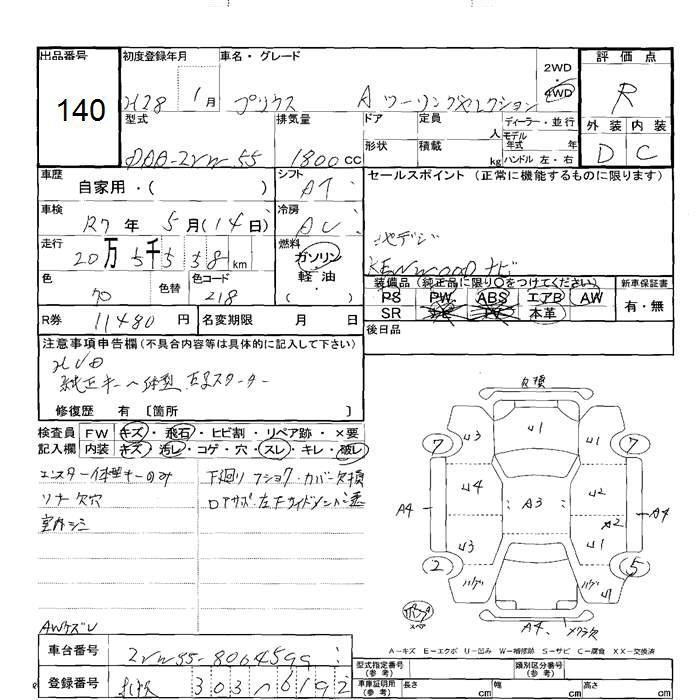 出品番号
140
初度登録年月
H28 1月
車名・グレード
プリウス Aツーリングセレクション
2WD
4WD
評価点
R
外装 内装
D C
型式
DAA-ZVW55
排気量
1800cc
ドア 定員 人
形状 積載 kg
ディーラー・並行
モデル年式 年
ハンドル 左・右
車歴
自家用・( )
シフト
AT
セールスポイント (正常に機能するものに限ります)
地デジ
KENWOODナビ
車検
R7年 5月(14日)
冷房
AC
走行
20万5千558km
燃料
ガソリン
軽・油
( )
色
色替
色コード
218
装備品(純正品に限り〇をつけてください)
PS PW ABS エアB AW
SR 本革
新車保証書
有・無
R券 11480円
名変期限 月 日
後日品
注意事項申告欄(不具合内容等は具体的に記入して下さい)
純正キー一体型 エンスターター
修復歴 有 [箇所 ]
検査員記入欄
FW キズ・飛石・ヒビ割・リペア跡・×要
内装 キズ・汚レ・コゲ・穴・スレ・キレ・破レ
エンスター一体型キーのみ
ソナー欠穴
室内シミ
下廻りフショク・カバー欠損
AWケズレ
7 U3 U1 U1 7
A4 U4 A3 U2 A2 A4
2 U3 U1 5
バゲ バゲ U1
A4
A-キズ E-エクボ U-凹み W-補修跡 S-サビ C-腐食 XX-交換済
車台番号
ZVW55-8064599
登録番号
303 6192
型式指定番号(参考)
類別区分番号(参考)
車庫証明用(参考)
長さ cm
幅 cm
高さ cm